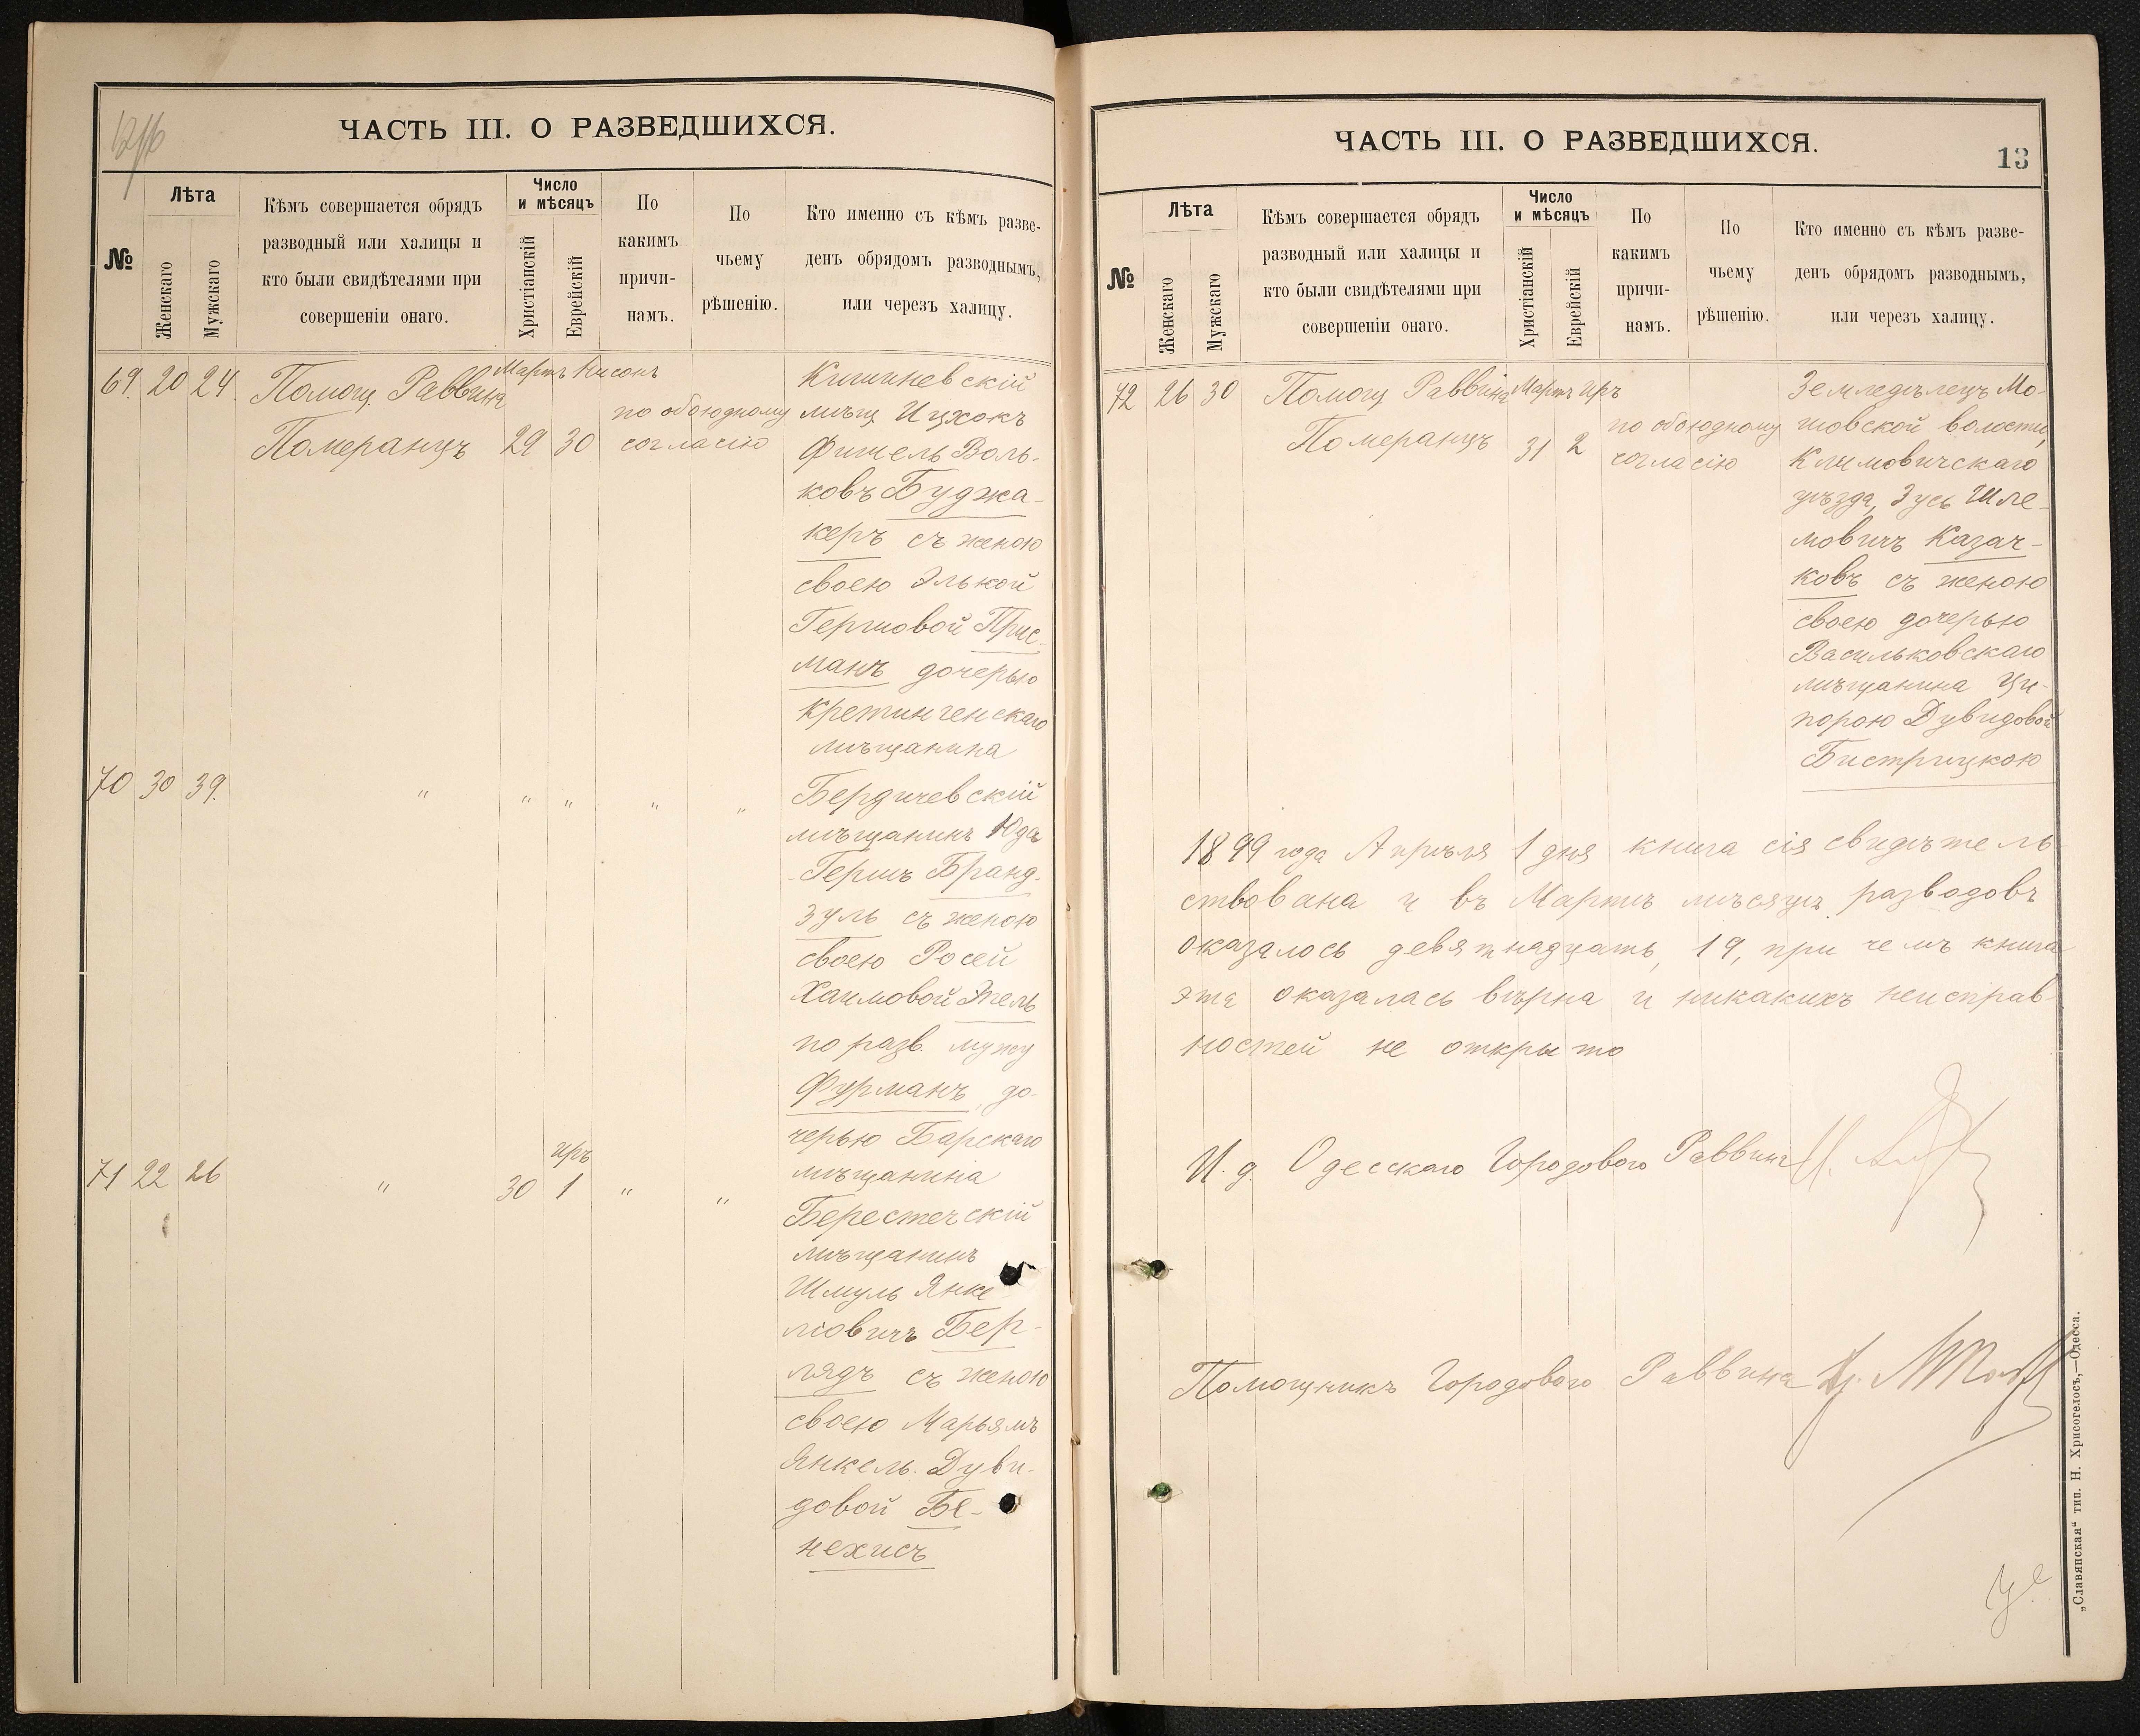 ЧАСТЬ III. О РАЗВЕДШИХСЯ.
№
Лѣта
Женскаго
Мужскаго
Кѣмъ совершается обрядъ
разводный или халицы и
кто были свидѣтелями при
совершеніи онаго.
Число
и мѣсяцъ
Христіанскій
Еврейскій
По
какимъ
причи-
намъ.
По
чьему
рѣшенію.
Кто именно съ кѣмъ разве-
денъ обрядомъ разводнымъ,
или черезъ халицу.
69. 20 24. Помощ. Раввина
Померанцъ
Мартъ Нисонъ
29 30
по обоюдному
согласію
Кишиневскій
мѣщ Ицхокъ
Фишель Воль-
ковъ Буджа-
керъ съ женою
своею Элькой
Гершовой Прис-
манъ дочерью
Кретингенскаго
мѣщанина
70 30 39. " " " " "
Бердичевскій
мѣщанинъ Юда
-Гершъ Бранд-
зуль съ женою
своею Росей
Хаимовой Этель
по разв. мужу
Фурманъ, до-
черью Барскаго
мѣщанина
71 22 26 " 30
Иръ
1 " "
Берестечскій
мѣщанинъ
Шмуль Янке
ліовичъ Бер-
лядъ съ женою
своею Марьямъ
Янкель. Дуви-
довой Бе-
нехисъ
ЧАСТЬ III. О РАЗВЕДШИХСЯ.
13
№
Лѣта
Женскаго
Мужскаго
Кѣмъ совершается обрядъ
разводный или халицы и
кто были свидѣтелями при
совершеніи онаго.
Число
и мѣсяцъ
Христіанскій
Еврейскій
По
какимъ
причи-
намъ.
По
чьему
рѣшенію.
Кто именно съ кѣмъ разве-
денъ обрядомъ разводнымъ,
или черезъ халицу.
72 26 30 Помощ Раввина
Померанцъ
Мартъ Иръ
31 2
по обоюдному
согласію
Земледѣлецъ Мо-
шовской волости,
Климовичскаго
уѣзда, Зусь Шле-
мовичъ Казач-
ковъ съ женою
своею дочерью
Васильковскаго
мѣщанина Ци-
порою Дувидовой
Бистрицкою
1899 года Апрѣля 1 дня книга сія свидѣтель-
ствована и въ Мартѣ мѣсяцѣ разводовъ
оказалось девятнадцать, 19, при чемъ книга
эта оказалась вѣрна и никакихъ неисправ-
ностей не открыто
И. д. Одесскаго Городового Раввина
Помощникъ Городового Раввина
„Славянская“ тип. Н. Хрисогелосъ,—Одесса.